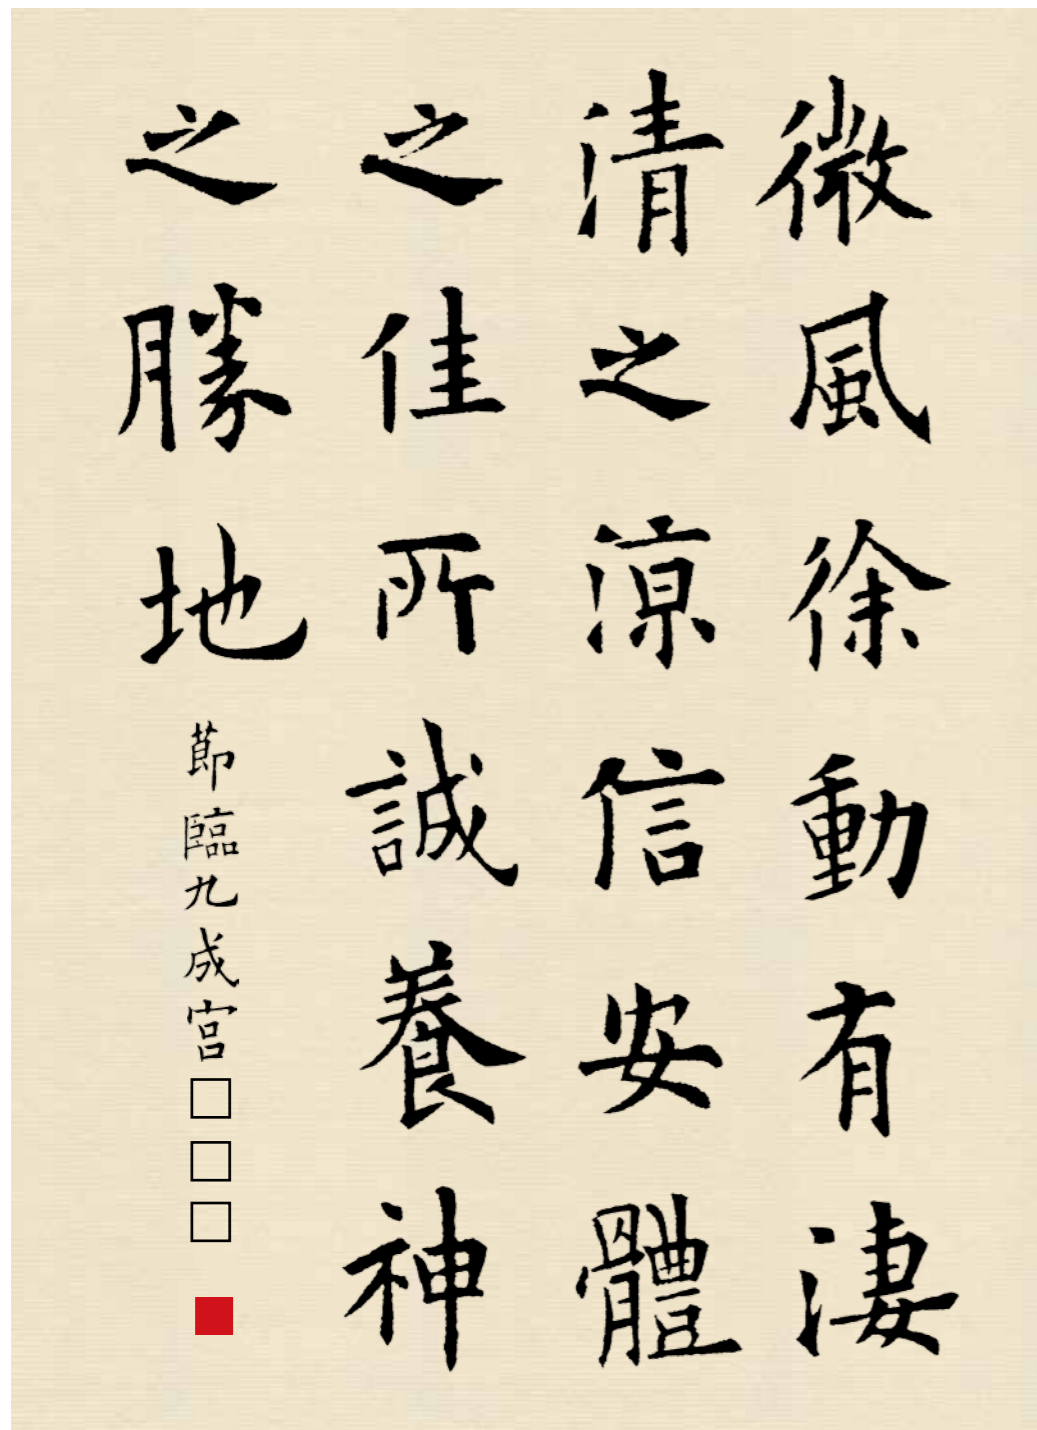 微風徐動有淒
清之涼信安體
之佳所誠養神
之勝地
節臨九成宮□□□